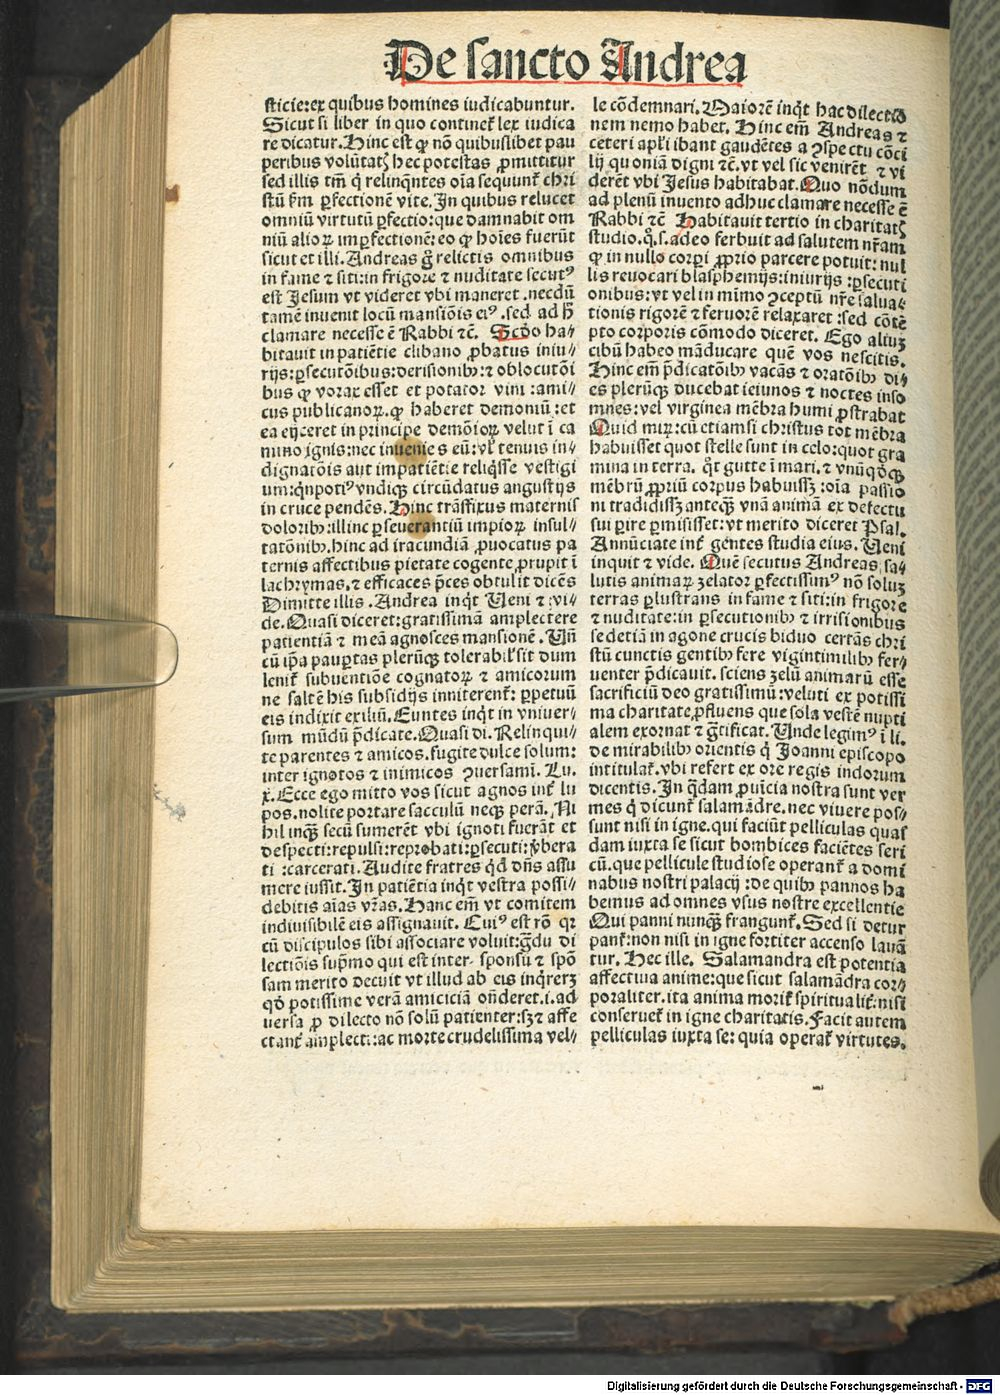 De sancto Andrea
sticie: ex quibus homines iudicabuntur.
Sicut si liber in quo continet̃ lex iudica
re dicatur. Hinc est ꝙ nõ quibuslibet pau
peribus volũtatꝫ hec potestas ꝓmittitur
sed illis tm̃ q̃ relinq̃ntes oĩa sequunt̃ chri
stũ ẜm ꝑfectionẽ vite. In quibus relucet
omniũ virtutũ ꝑfectio: que damnabit om
niũ alioꝝ imꝑfectionẽ: eo ꝙ hoĩes fuerũt
sicut et illi. Andreas g̃ relictis omnibus
in fame ⁊ siti: in frigore ⁊ nuditate secutꝰ
est Jesum vt videret vbi maneret .necdũ
tamẽ inuenit locũ mansiõis eiꝰ .sed ad h̃
clamare necesse ẽ Rabbi ⁊c̃. Scd̃o ha-
bitauit in patiẽtie clibano ꝓbatus iniu-
rijs: ꝑsecutõibus: derisionibꝫ: ⁊ oblocutõi
bus ꝙ vorax esset et potator vini: ami-
cus publicanoꝝ. ꝙ haberet demoniũ: et
ea eijceret in principe demõioꝝ velut ĩ ca
mino ignis: nec inuenies eũ: vl̃ tenuis in-
dignatõis aut impatiẽtie reliq̃sse vestigi
um: q̃npotiꝰ vndiqꝫ circũdatus angustijs
in cruce pendẽs. Hinc trãsfixus maternis
doloribꝫ: illinc ꝑseuerantiũ impioꝝ insul-
tatõnibꝫ. hinc ad iracundiã ꝓuocatus pa
ternis affectibus pietate cogente ꝓrupit ĩ
lachrymas, ⁊ efficaces p̃ces obtulit dicẽs
Dimitte illis. Andrea inq̃t Veni ⁊ vi-
de. Quasi diceret: gratissimã amplectere
patientiã ⁊ meã agnosces mansionẽ. Vñ
cũ ip̃a pauꝑtas plerũqꝫ tolerabil̃ sit dum
lenit̃ subuentiõe cognatoꝝ ⁊ amicorum
ne saltẽ his subsidijs inniterent̃: ꝑpetuũ
eis indixit exiliũ. Euntes inq̃t in vniuer-
sum mũdũ p̃dicate. Quasi di. Relinqui-
te parentes ⁊ amicos. fugite dulce solum:
inter ignotos ⁊ inimicos ꝯuersami. Lu.
x. Ecce ego mitto vos sicut agnos int̃ lu
pos. nolite portare sacculũ neqꝫ perã. Ni
hil inq̃ꝫ secũ sumerẽt vbi ignoti fuerãt et
despecti: repulsi: reprobati: ꝑsecuti: v̓bera
ti: carcerati. Audite fratres q̃d dñs assu
mere iussit. In patiẽtia inq̃t vestra possi-
debitis aĩas vr̃as. Hanc em̃ vt comitem
indiuisibilẽ eis assignauit. Cuiꝰ est rõ qꝛ
cũ discipulos sibi associare voluit: g̃du di
lectiõis sup̃mo qui est inter sponsũ ⁊ spõ
sam merito decuit vt illud ab eis inq̃rerꝫ
qd̃ potissime verã amiciciã oñderet .i. ad
uersa ꝓ dilecto nõ solũ patienter: sꝫ ⁊ affe
ctant̃ amplecti: ac morte crudelissima vel-
le cõdemnari. Maiorẽ inq̃t hac dilectio
nem nemo habet. Hinc em̃ Andreas ⁊
ceteri apl̃i ibant gaudẽtes a ꝯspectu cõci
lij quoniã digni ⁊c̃. vt vel sic venirẽt ⁊ vi
derẽt vbi Jesus habitabat. Quo nõdum
ad plenũ inuento adhuc clamare necesse ẽ
Rabbi ⁊c̃ Habitauit tertio in charitatꝫ
studio. q̃. s. adeo ferbuit ad salutem nr̃am
ꝙ in nullo corpi ꝓprio parcere potuit: nul
lis reuocari blasphemijs: iniurijs: ꝑsecuti
onibus: vt vel in mĩmo ꝯceptũ nr̃ẽ salua-
tionis rigorẽ ⁊ feruorẽ relaxaret: sed cõtẽ
pto corporis cõmodo diceret. Ego aliuꝫ
cibũ habeo mãducare quẽ vos nescitis.
Hinc em̃ p̃dicatõibꝫ vacãs ⁊ oratõibꝫ di-
es plerũqꝫ ducebat ieiunos ⁊ noctes inso
mnes: vel virginea mẽbra humi ꝓstrabat
Quid miꝝ: cũ etiamsi christus tot mẽbra
habuisset quot stelle sunt in celo: quot gra
mina in terra. q̃t gutte ĩ mari. ⁊ vnũqd̃qꝫ
mẽbrũ ꝓpriũ corpus habuissꝫ: oĩa passio
ni tradidissꝫ anteqꝫ vnã animã ex defectu
sui ꝑire ꝑmisisset: vt merito diceret Psal.
Annũciate int̃ gẽntes studia eius. Veni
inquit ⁊ vide. Quẽ secutus Andreas, sa-
lutis animaꝝ zelator ꝑfectissimꝰ nõ soluꝫ
terras ꝑlustrans in fame ⁊ siti: in frigore
⁊ nuditate: in ꝑsecutionibꝫ ⁊ irrisionibus
sed etiã in agone crucis biduo certãs chri
stũ cunctis gentibꝫ fere vigintimilibꝫ fer-
uenter p̃dicauit. sciens zelũ animarũ esse
sacrificiũ deo gratissimũ: veluti ex potissi
ma charitate ꝓfluens que sola vestẽ nupti
alem exornat ⁊ g̃tificat. Unde legimꝰ ĩ li.
de mirabilibꝫ orientis q̃ Joanni episcopo
intitulat̃. vbi refert ex ore regis indorum
dicentis. In q̃dam ꝓuĩcia nostra sunt ver
mes q̃ dicunt̃ salamãdre. nec viuere pos-
sunt nisi in igne. qui faciũt pelliculas quas
dam iuxta se sicut bombices faciẽtes seri
cũ. que pellicule studiose operant̃ a domi
nabus nostri palacij: de quibꝫ pannos ha
bemus ad omnes vsus nostre excellentie
Qui panni nunqꝫ frangunt̃. Sed si detur
pant̃: non nisi in igne fortiter accenso lauã
tur. Hec ille. Salamandra est potentia
affectiua anime: que sicut salamãdra cor-
poraliter. ita anima morit̃ spiritualit̃: nisi
conseruet̃ in igne charitatis. Facit autem
pelliculas iuxta se: quia operat̃ virtutes.
Digitalisierung gefördert durch die Deutsche Forschungsgemeinschaft - DFG